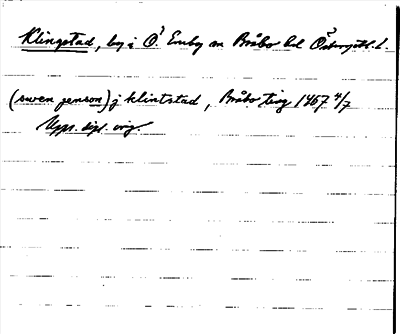 Klingstad, by i Ö. Eneby sn Bråbo hd Östergötl. l.
(swen jenson) j klintstad, Bråbo ting 1467 4/7
Upps. dipl. orig.